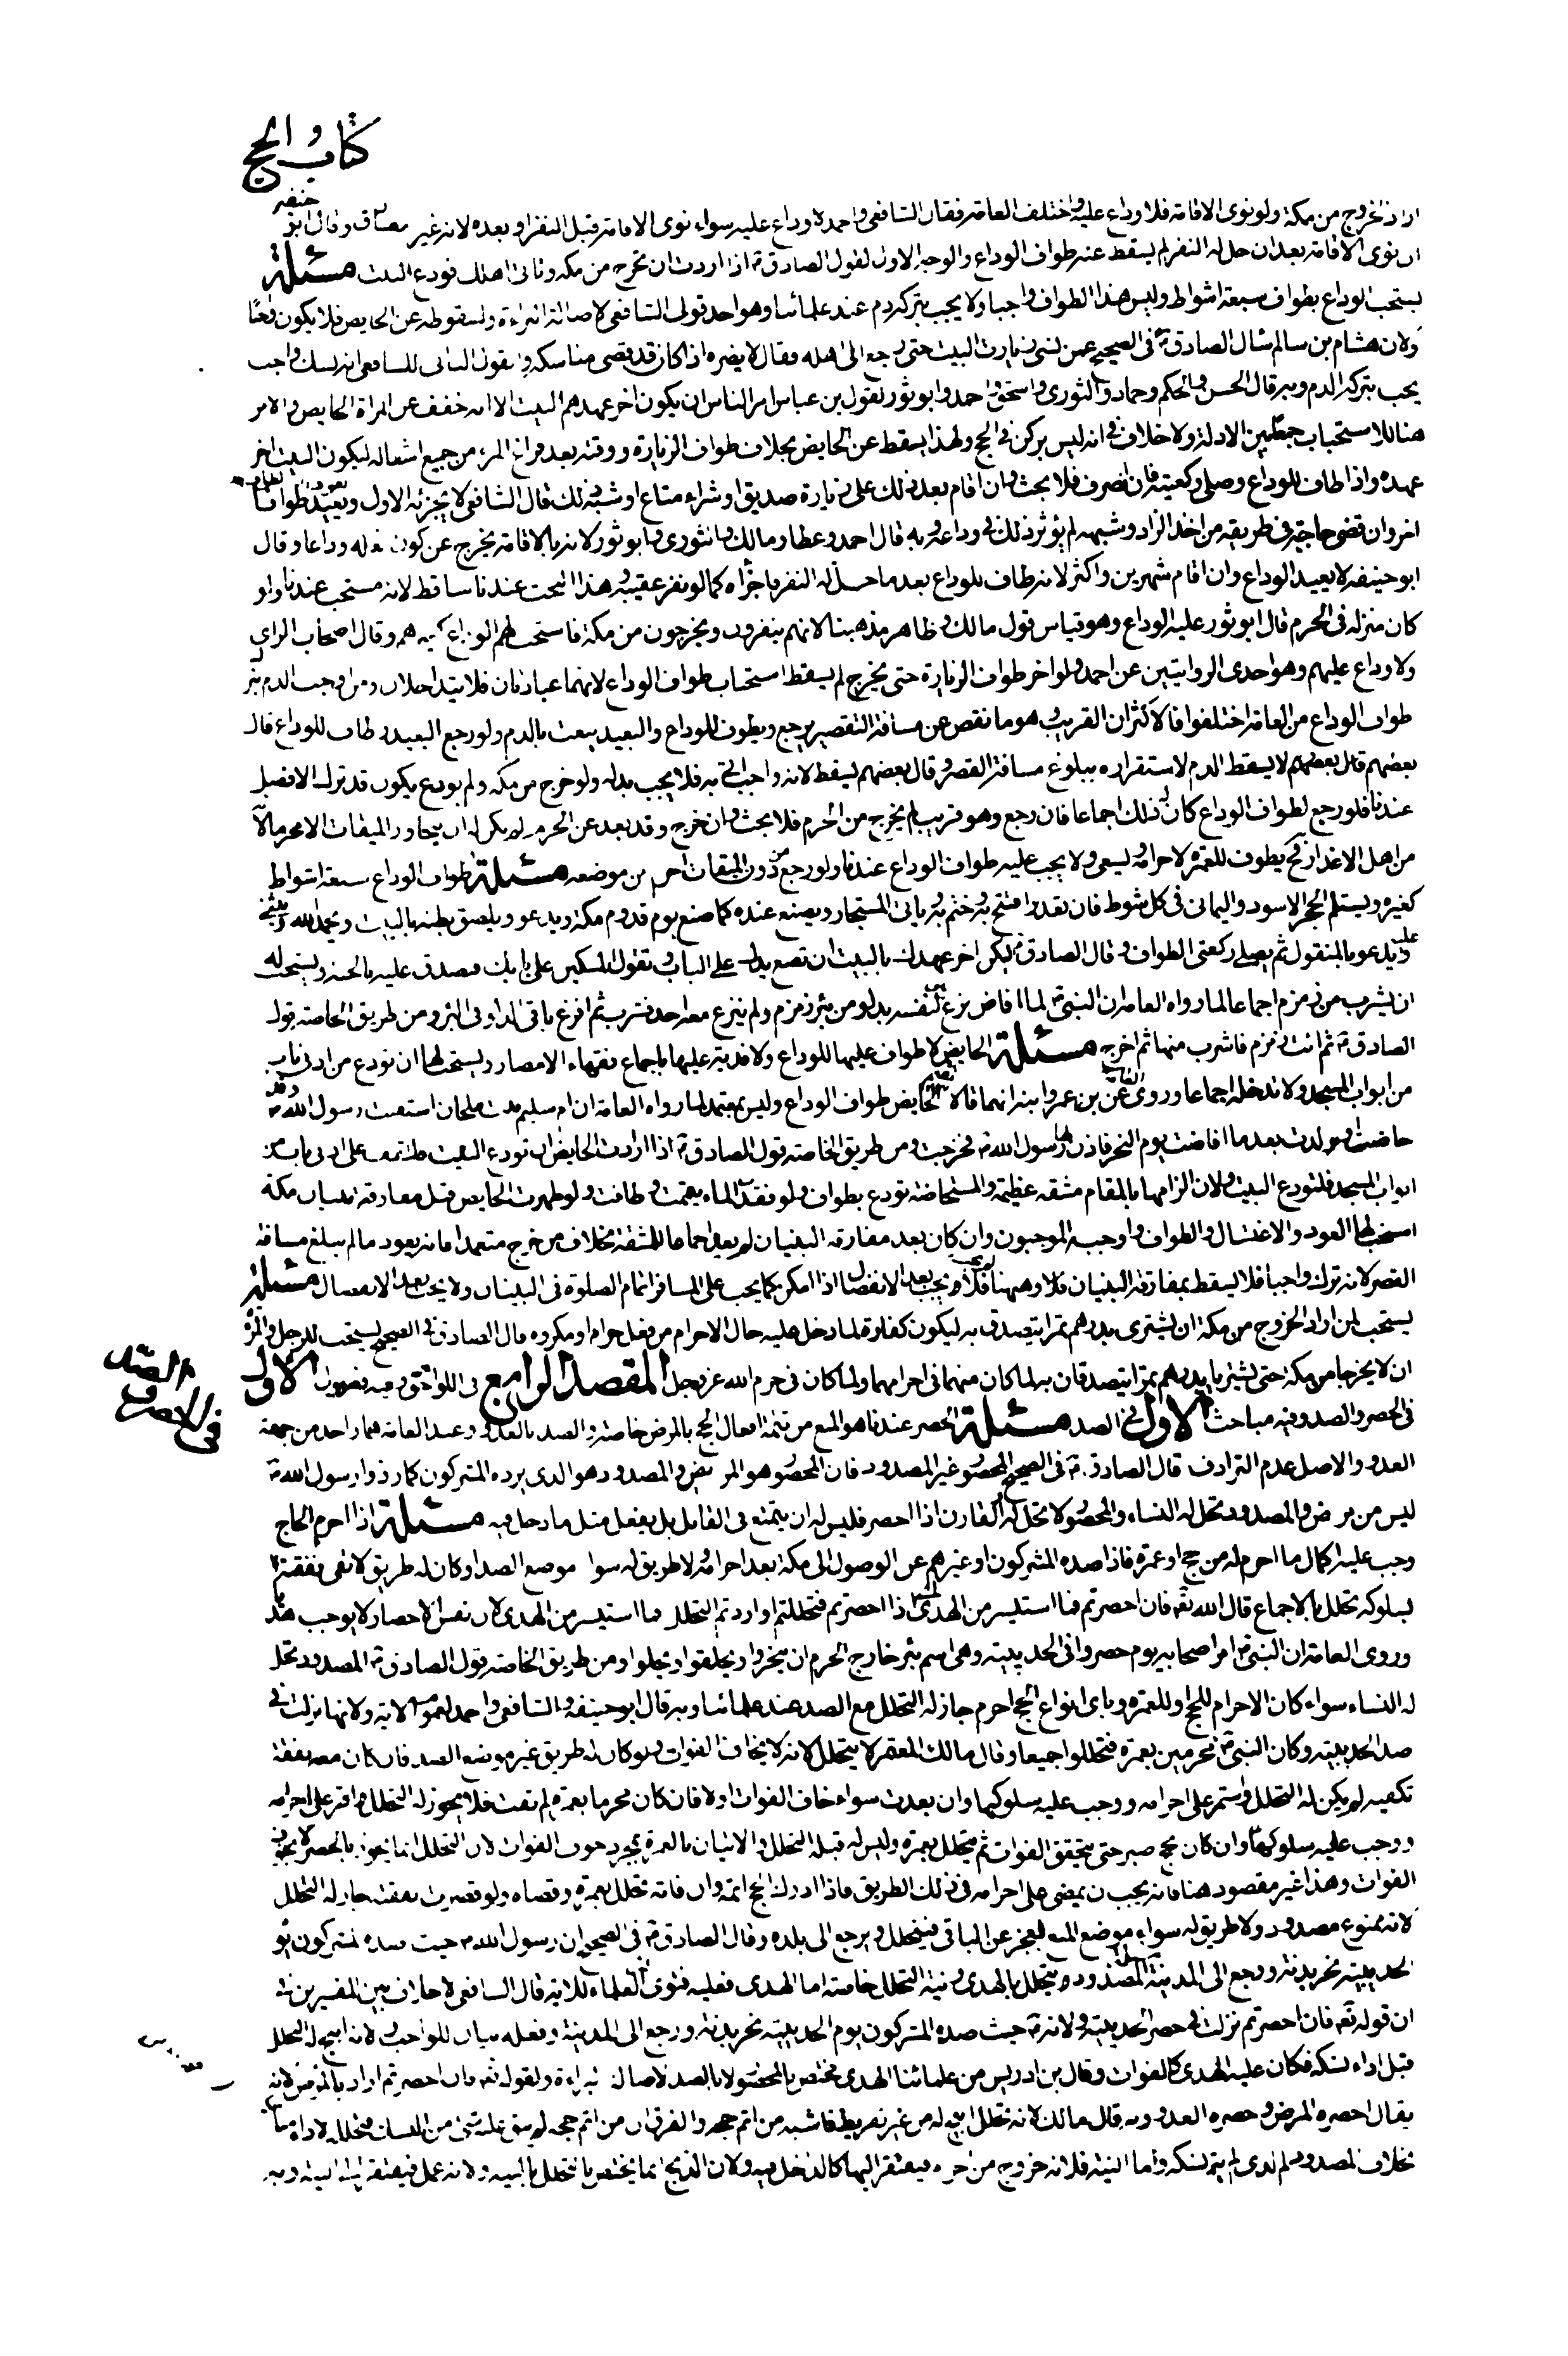 كتاب الحج
اراد الخروج من مكة ولو نوى الاقامة فلا وداع عليه واختلف العامة فقال الشافعي واحمد لا وداع عليه سواء نوى الاقامة قبل النفر او بعده لانه غير مفارق وقال ابو حنيفه
ان نوى الاقامة بعد ان حل له النفر لم يسقط عنه طواف الوداع والوجه الاول لقول الصادق ع اذا اردت ان تخرج من مكه وتاتى اهلك فودع البيت مسئلة
يستحب الوداع بطواف سبعة اشواط وليس هذا الطواف واجبا ولا يجب بتركه دم عند علمائنا وهو احد قولى الشافعي لاصالة البراءة ولسقوطه عن الحايض فلا يكون واجبا
ولان هشام بن سالم سال الصادق ع فى الصحيح عمن نسى زيارت البيت حتى رجع الى اهله فقال لا يضره اذا كان قد قضى مناسكه والقول الثانى للشافعى انه نسك واجب
يجب بتركه الدم وبه قال الحسن والحكم وحماد والثورى واسحق واحمد وابو ثور لقول بن عباس امر الناس ان يكون اخر عهدهم البيت الا انه خفف عن المراة الحايض والامر
هنا للاستحباب جمعا بين الادلة ولا خلاف فى انه ليس بركن فى الحج ولهذا يسقط عن الحايض بخلاف طواف الزيارة ووقته بعد فراغ المرء من جميع اشغاله ليكون البيت اخر
عهده واذا طاف للوداع وصلى ركعتيه فان انصرف فلا بحث وان اقام بعد ذلك على زيارة صديق او شراء متاع او شبه ذلك قال الشافعى لا يجزئه الاول ويعيد طوافا
اخر وان قضى حاجته فى طريقه من اخذ الزاد وشبهه لم يؤثر ذلك فى وداعه وبه قال احمد وعطا ومالك والثورى وابو ثور لانه بالاقامة يخرج عن كون فعله وداعا وقال
ابو حنيفه لا يعيد الوداع وان اقام شهرين واكثر لانه طاف للوداع بعد ما حل له النفر فاجزاه كما لو نفر عقيبه وهذا البحث عندنا ساقط لانه مستحب عندنا ولو
كان منزله فى الحرم قال ابو ثور عليه الوداع وهو قياس قول مالك وظاهر مذهبنا لانهم ينفرون ويخرجون من مكة فاستحب لهم الوداع كغيرهم وقال اصحاب الراى
ولا وداع عليهم وهو احدى الروايتين عن احمد ولو اخر طواف الزيارة حتى يخرج لم يسقط استحباب طواف الوداع لانهما عبادتان فلا يتداخلان ومن اوجب الدم بترك
طواف الوداع من العامة اختلفوا فالاكثر ان القريب وهو ما نقص عن مسافة التقصير يرجع ويطوف للوداع والبعيد يبعث بالدم ولو رجع البعيد وطاف للوداع قال
بعضهم لا يسقط الدم لاستقراره ببلوغ مسافة القصر وقال بعضهم يسقط لانه واجب اتى به فلا يجب بدله ولو خرج من مكه ولم يودع يكون قد ترك الافضل
عندنا فلو رجع لطواف الوداع كان له ذلك اجماعا فان رجع وهو قريب لم يخرج من الحرم فلا بحث وان خرج وقد بعد عن الحرم لم يكن له ان يتجاوز الميقات الا محرما الا
من اهل الاعذار فح يطوف للعمرة لاحرامه ويسعى ولا يجب عليه طواف الوداع عندنا ولو رجع من دون الميقات احرم من موضعه مسئلة طواف الوداع سبعة اشواط
كغيره ويستلم الحجر الاسود واليمانى فى كل شوط فان تعذر افتتح به وختم به وياتى المستجار ويصنع عنده كما صنع يوم قدوم مكة ويدعو ويلصق بطنه بالبيت ويحمد الله ويثنى
عليه ويدعو بالمنقول ثم يصلى ركعتى الطواف وقال الصادق ع ليكن اخر عهدك بالبيت ان تضع يدك على الباب وتقول المسكين على بابك فتصدق عليه بالجنة ويستحب له
ان يشرب من زمزم اجماعا لما رواه العامة ان النبى ص لما افاض نزع لنفسه بدلو من بئر زمزم ولم ينزع معه احد فشرب ثم افرغ باقى الدلو فى البئر ومن طريق الخاصة قول
الصادق ع ثم ائت زمزم فاشرب منها ثم اخرج مسئلة الحايض لا طواف عليها للوداع ولا فدية عليها باجماع فقهاء الامصار ويستحب لها ان تودع من ادنى باب
من ابواب المسجد ولا تدخله اجماعا وروى العامة عن بن عمر وابنه انهما قالا تقيم الحايض طواف الوداع وليس بمعتمد لما رواه العامة ان ام سليم بنت ملحان استفتت رسول الله ص وقد
حاضت او ولدت بعد ما افاضت يوم النحر فاذن لها رسول الله ص فخرجت ومن طريق الخاصة قول الصادق ع اذا ارادت الحايض ان تودع البيت فلتقف على ادنى باب من
ابواب المسجد فلتودع البيت ولان الزامها بالمقام مشقه عظيمة والمستحاضة تودع بطواف ولو فقدت الماء تيممت وطافت ولو طهرت الحايض قبل مفارقة بنيان مكة
استحب لها العود والاغتسال والطواف واوجبه الموجبون وان كان بعد مفارقه البنيان لم يعد اجماعا للمشقة بخلاف من خرج متعمدا فانه يعود ما لم يبلغ مسافة
القصر لانه ترك واجبا فلا يسقط بمفارقة البنيان وههنا لم يجب بعد الانفصال اذا امكن كما يجب على المسافر اتمام الصلوة فى البنيان ولا يجب بعد الانفصال مسئلة
يستحب لمن اراد الخروج من مكة ان يشترى بدرهم تمرا يتصدق به ليكون كفارة لما دخل عليه حال الاحرام من فعل حرام او مكروه قال الصادق ع فى الصحيح يستحب للرجل والمراة
ان لا يخرجا من مكة حتى يشتريا بدرهم تمرا يتصدقان به لما كان منهما فى احرامهما ولما كان فى حرم الله عز وجل المقصد الرابع فى اللواحق وفيه فصول الاول
فى الاحصار والصد
فى الحصر والصد وفيه مباحث الاول فى الصد مسئلة الحصر عندنا هو المنع من تتمة افعال الحج بالمرض خاصة والصد بالعدو وعند العامة هما واحد من جهة
العدو والاصل عدم الترادف قال الصادق ع فى الصحيح المحصور غير المصدود فان المحصور هو المريض والمصدود هو الذى يرده المشركون كما ردوا رسول الله ص
ليس من مرض والمصدود تحل له النساء والمحصور لا تحل له القارن اذا احصر فليس له ان يتمتع فى القابل بل يفعل مثل ما دخل فيه مسئلة اذا احرم الحاج
وجب عليه اكمال ما احرم له من حج او عمرة فاذا صده المشركون او غيرهم عن الوصول الى مكة بعد احرامه ولا طريق له سوا موضع الصد او كان له طريق لا تفى نفقته
لسلوكه تحلل بالاجماع قال الله تع فان احصرتم فما استيسر من الهدى المعنى اذا احصرتم فتحللتم او اردتم التحلل فما استيسر من الهدى لان نفس الاحصار لا يوجب هديا
وروى العامة ان النبى ص امر اصحابه يوم حصروا فى الحديبية وهى اسم بئر خارج الحرم ان ينحروا ويحلقوا ويحلوا ومن طريق الخاصة قول الصادق ع المصدود تحل
له النساء سواء كان الاحرام للحج او للعمرة وباى انواع الحج احرم جاز له التحلل مع الصد عند علمائنا وبه قال ابو حنيفه والشافعى واحمد لعموم الاية ولانها نزلت فى
صد الحديبية وكان النبى ص محرمين بعمرة فتحللوا جميعا وقال مالك المعتمر لا يتحلل لانه لا يخاف الفوات ولو كان له طريق غير موضع الصد فان كان معه نفقة
تكفيه لم يكن له التحلل واستمر على احرامه ووجب عليه سلوكها وان بعدت سواء خاف الفوات اولا فان كان محرما بعمرة لم تفت فلا يجوز له التحلل واقر على احرامه
ووجب عليه سلوكها وان كان بحج صبر حتى يتحقق الفوات ثم يتحلل بعمرة وليس له قبله التحلل والاتيان بالعمرة بمجرد خوف الفوات لان التحلل انما يجوز بالحصر لا بخوف
الفوات وهذا غير مصدود هنا فانه يجب ان يمضى على احرامه فى ذلك الطريق فاذا ادرك الحج اتمه وان فاته تحلل بعمرة وقضاه ولو قصرت نفقته جاز له التحلل
لانه ممنوع مصدود ولا طريق له سواء موضع المنع لعجزه عن الباقى فيتحلل ويرجع الى بلده وقال الصادق ع فى الصحيح ان رسول الله ص حيث صده المشركون يوم
الحديبية نحر بدنة ورجع الى المدينة مسئلة المصدود يتحلل بالهدى ونية التحلل خاصة اما الهدى فعليه فتوى اكثر العلماء للاية قال الشافعى لا خلاف بين المفسرين فى
ان قوله تع فان احصرتم نزلت فى حصر الحديبية ولانه ص حيث صده المشركون يوم الحديبية نحر بدنة ورجع الى المدينة وفعله بيان للواجب ولانه ابيح له التحلل
قبل اداء نسكه فكان عليه الهدى كالفوات وقال بن ادريس من علمائنا الهدى مختص بالمحصور لا بالصد لاصالة البراءة ولقوله تع فان احصرتم اراد بالمرض لانه
يقال احصره المرض وحصره العدو وبه قال مالك لانه تحلل ابيح له من غير تفريط فاشبه من اتم حجه والفرق ان من اتم حجه لم يبق عليه شئ من النسك فتحلله لاداء مناسكه
بخلاف المصدود الذى لم يتم نسكه واما النية فلانه خروج من احرام فيفتقر اليها كالداخل فيه ولان الذبح انما يختص بالتحلل بالنية ولانه عمل فيفتقر الى النية وبه